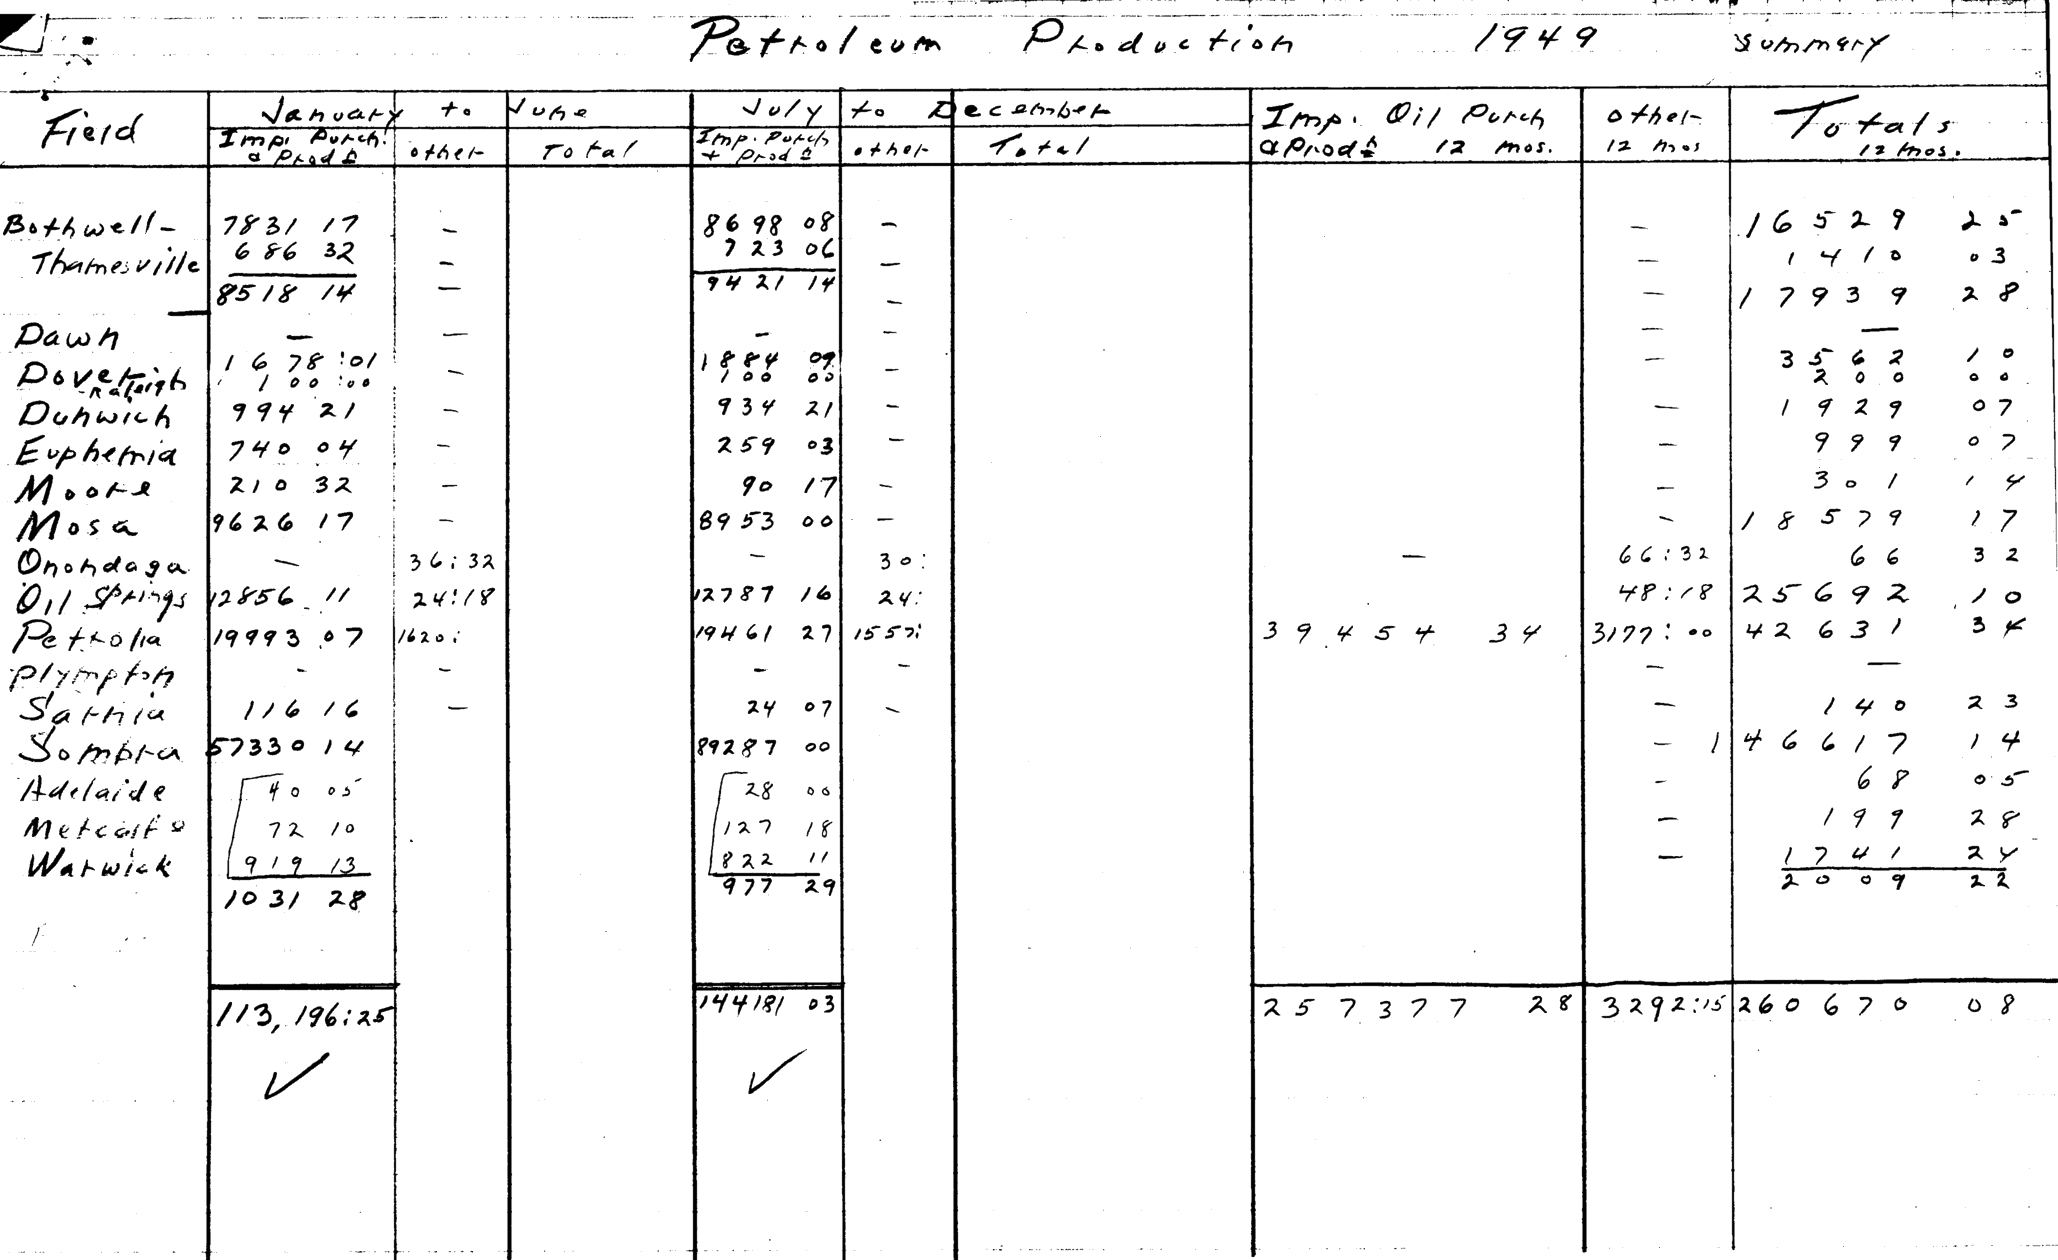 Petroleum Production 1949 Summary
Field January to June July to December Imp. Oil Purch other Totals
Imp. Purch. other Total Imp. Purch other Total & Prod⁠n 12 mos. 12 mos 12 mos.
& Prod⁠n + Prod⁠n
Bothwell- 7831 17 – 8698 08 – – 16529 25
Thamesville 686 32 – 723 06 – – 1410 03
8518 14 – 9421 14 – – 17939 28
Dawn – – – – – –
Dover 1678:01 – 1884 09 – – 3562 10
Raleigh 100:00 100 00 200 00
Dunwich 994 21 – 934 21 – – 1929 07
Euphemia 740 04 – 259 03 – – 999 07
Moore 210 32 – 90 17 – – 301 14
Mosa 9626 17 – 8953 00 – – 18579 17
Onondaga – 36:32 – 30: – 66:32 66 32
Oil Springs 12856 11 24:18 12787 16 24: 48:18 25692 10
Petrolia 19993 07 1620: 19461 27 1557: 39454 34 3177:00 42631 34
Plympton - – – – – –
Sarnia 116 16 – 24 07 – – 140 23
Sombra 57330 14 89287 00 – 146617 14
Adelaide 40 05 28 00 – 68 05
Metcalfe 72 10 127 18 – 199 28
Warwick 919 13 822 11 – 1741 24
1031 28 977 29 2009 22
113,196:25 144181 03 257377 28 3292:15 260670 08